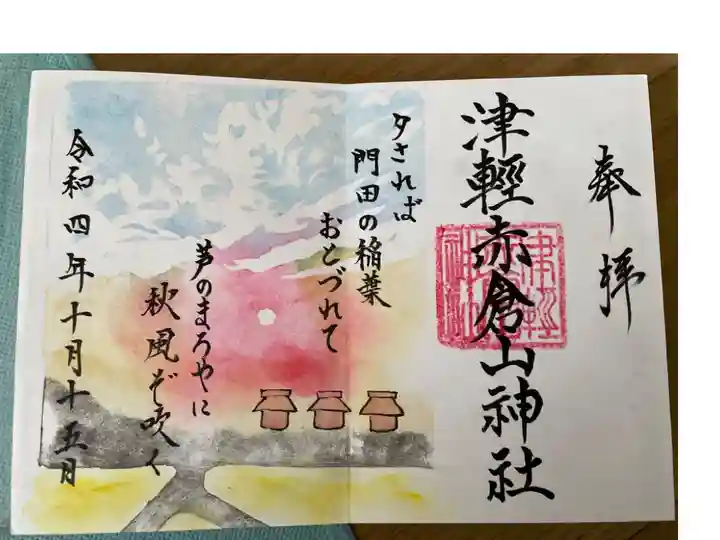 奉拝
津輕赤倉山神社
夕されば
門田の稲葉
おとづれて
芦のまろやに
秋風ぞ吹く
令和四年十月十五日